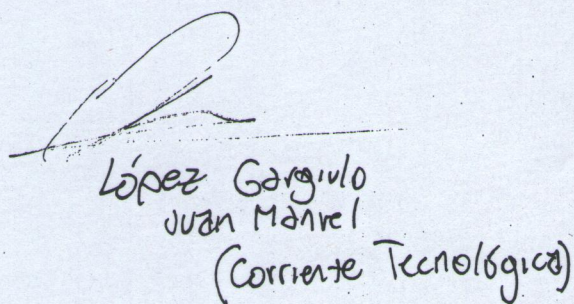 López Gargiulo
Juan Manuel
(Corriente Tecnológica)